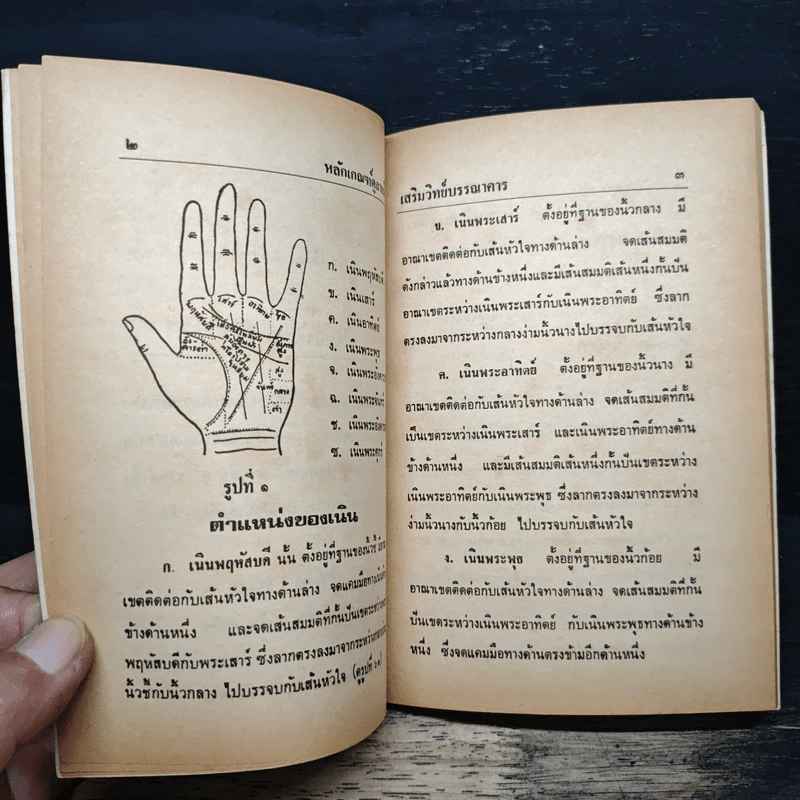 ๒
หลักเกณฑ์ดูลาย
ก. เนินพฤหัสบดี
ข. เนินเสาร์
ค. เนินอาทิตย์
ง. เนินพระพุธ
จ. เนินพระอังคาร
ฉ. เนินพระจันทร์
ช. เนินพระอังคาร
ซ. เนินพระศุกร์
เสาร์ อาทิตย์ พุธ
พฤหัสบดี
รูปที่ ๑
ตำแหน่งของเนิน
ก. เนินพฤหัสบดี นั้น ตั้งอยู่ที่ฐานของนิ้วชี้
เขตติดต่อกับเส้นหัวใจทางด้านล่าง จดแคมมือทาง
ข้างด้านหนึ่ง และจดเส้นสมมติที่กั้นปันเขตระหว่าง
พฤหัสบดีกับพระเสาร์ ซึ่งลากตรงลงมาจากระหว่าง
นิ้วชี้กับนิ้วกลาง ไปบรรจบกับเส้นหัวใจ (ดูรูปที่ ๖๑)
เสริมวิทย์บรรณาคาร
๓
ข. เนินพระเสาร์ ตั้งอยู่ที่ฐานของนิ้วกลาง มี
อาณาเขตติดต่อกับเส้นหัวใจทางด้านล่าง จดเส้นสมมติ
ดังกล่าวแล้วทางด้านข้างหนึ่งและมีเส้นสมมติเส้นหนึ่งกั้นปัน
อาณาเขตระหว่างเนินพระเสาร์กับเนินพระอาทิตย์ ซึ่งลาก
ตรงลงมาจากระหว่างกลางง่ามนิ้วนางไปบรรจบกับเส้นหัวใจ
ค. เนินพระอาทิตย์ ตั้งอยู่ที่ฐานของนิ้วนาง มี
อาณาเขตติดต่อกับเส้นหัวใจทางด้านล่าง จดเส้นสมมติที่กั้น
เป็นเขตระหว่างเนินพระเสาร์ และเนินพระอาทิตย์ทางด้าน
ข้างด้านหนึ่ง และมีเส้นสมมติเส้นหนึ่งกั้นปันเขตระหว่าง
เนินพระอาทิตย์กับเนินพระพุธ ซึ่งลากตรงลงมาจากระหว่าง
ง่ามนิ้วนางกับนิ้วก้อย ไปบรรจบกับเส้นหัวใจ
ง. เนินพระพุธ ตั้งอยู่ที่ฐานของนิ้วก้อย มี
อาณาเขตติดต่อกับเส้นหัวใจทางด้านล่าง จดเส้นสมมติที่กั้น
ปันเขตระหว่างเนินพระอาทิตย์ กับเนินพระพุธทางด้านข้าง
หนึ่ง ซึ่งจดแคมมือทางด้านตรงข้ามอีกด้านหนึ่ง